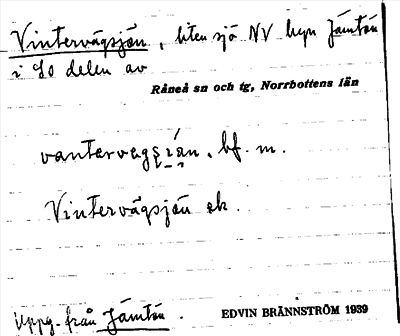 Vintervägsjön, liten sjö NV byn Jämtön
i SO delen av
Råneå sn och tg, Norrbottens län
vantervegs
bf. m.
Vintervägsjön ek.
Uppg. från Jämtön.
EDVIN BRÄNNSTRÖM 1939